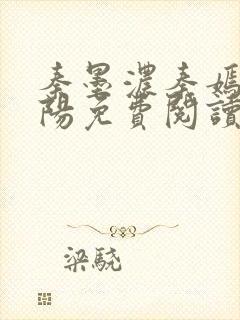 秦墨濃秦嫣
陽免費閱讀
梁驍